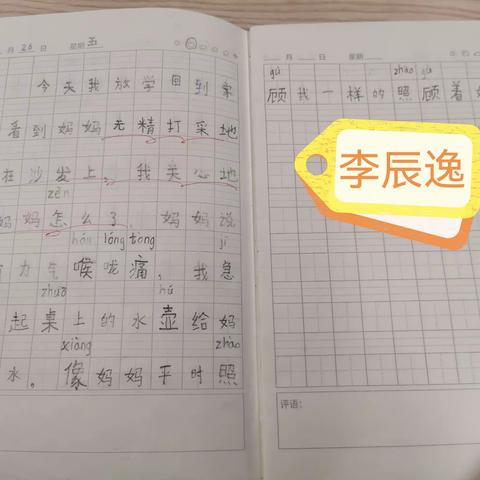 月 26 日 星期 五
今天我放学回到家
看到妈妈无精打采地
在沙发上。我关心地
zěn
妈妈怎么了。妈妈说
hóu lóng tòng jí
力气喉咙痛，我急
zhuō hú
起桌上的水壶给妈
xiàng zhào
水。像妈妈平时照
月 日 星期
gù zhào gù
顾我一样的照顾着
李辰逸
评语：